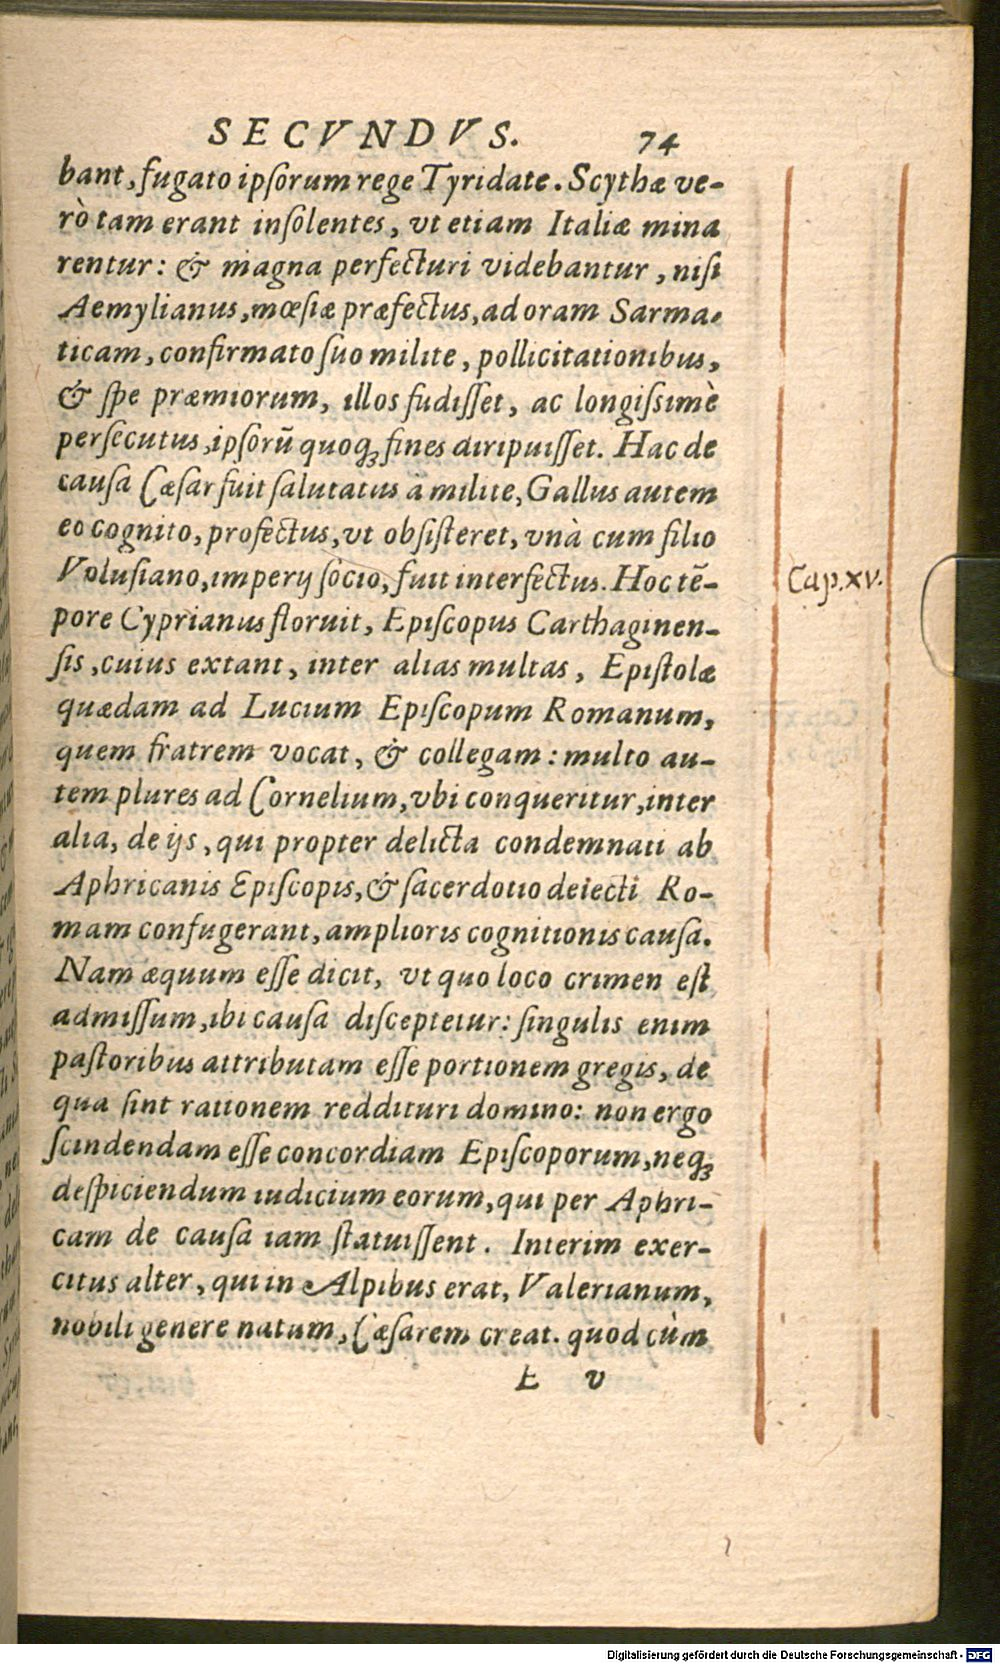 SECVNDVS. 74
bant, fugato ipſorum rege Tyridate. Scythæ ve-
rò tam erant inſolentes, vt etiam Italiæ mina
rentur: & magna perfecturi videbantur, niſi
Aemylianus, mœſiæ præfectus, ad oram Sarma-
ticam, confirmato ſuo milite, pollicitationibus,
& ſpe præmiorum, illos fudiſſet, ac longiſsimè
perſecutus, ipſorū quoqꝫ fines diripuiſſet. Hac de
cauſa Cæſar fuit ſalutatus à milite, Gallus autem
eo cognito, profectus, vt obſiſteret, vnà cum filio
Voluſiano, imperij ſocio, fuit interfectus. Hoc tē-
Cap. xv.
pore Cyprianus floruit, Epiſcopus Carthaginen-
ſis, cuius extant, inter alias multas, Epiſtolæ
quædam ad Lucium Epiſcopum Romanum,
quem fratrem vocat, & collegam: multo au-
tem plures ad Cornelium, vbi conqueritur, inter
alia, de ijs, qui propter delicta condemnati ab
Aphricanis Epiſcopis, & ſacerdotio deiecti Ro-
mam confugerant, amplioris cognitionis cauſa.
Nam æquum eſſe dicit, vt quo loco crimen eſt
admiſſum, ibi cauſa diſceptetur: ſingulis enim
paſtoribus attributam eſſe portionem gregis, de
qua ſint rationem reddituri domino: non ergo
ſcindendam eſſe concordiam Epiſcoporum, neqꝫ
deſpiciendum iudicium eorum, qui per Aphri-
cam de cauſa iam ſtatuiſſent. Interim exer-
citus alter, qui in Alpibus erat, Valerianum,
nobili genere natum, Cæſarem creat. quod cùm
E v
Digitalisierung gefördert durch die Deutsche Forschungsgemeinschaft - DFG